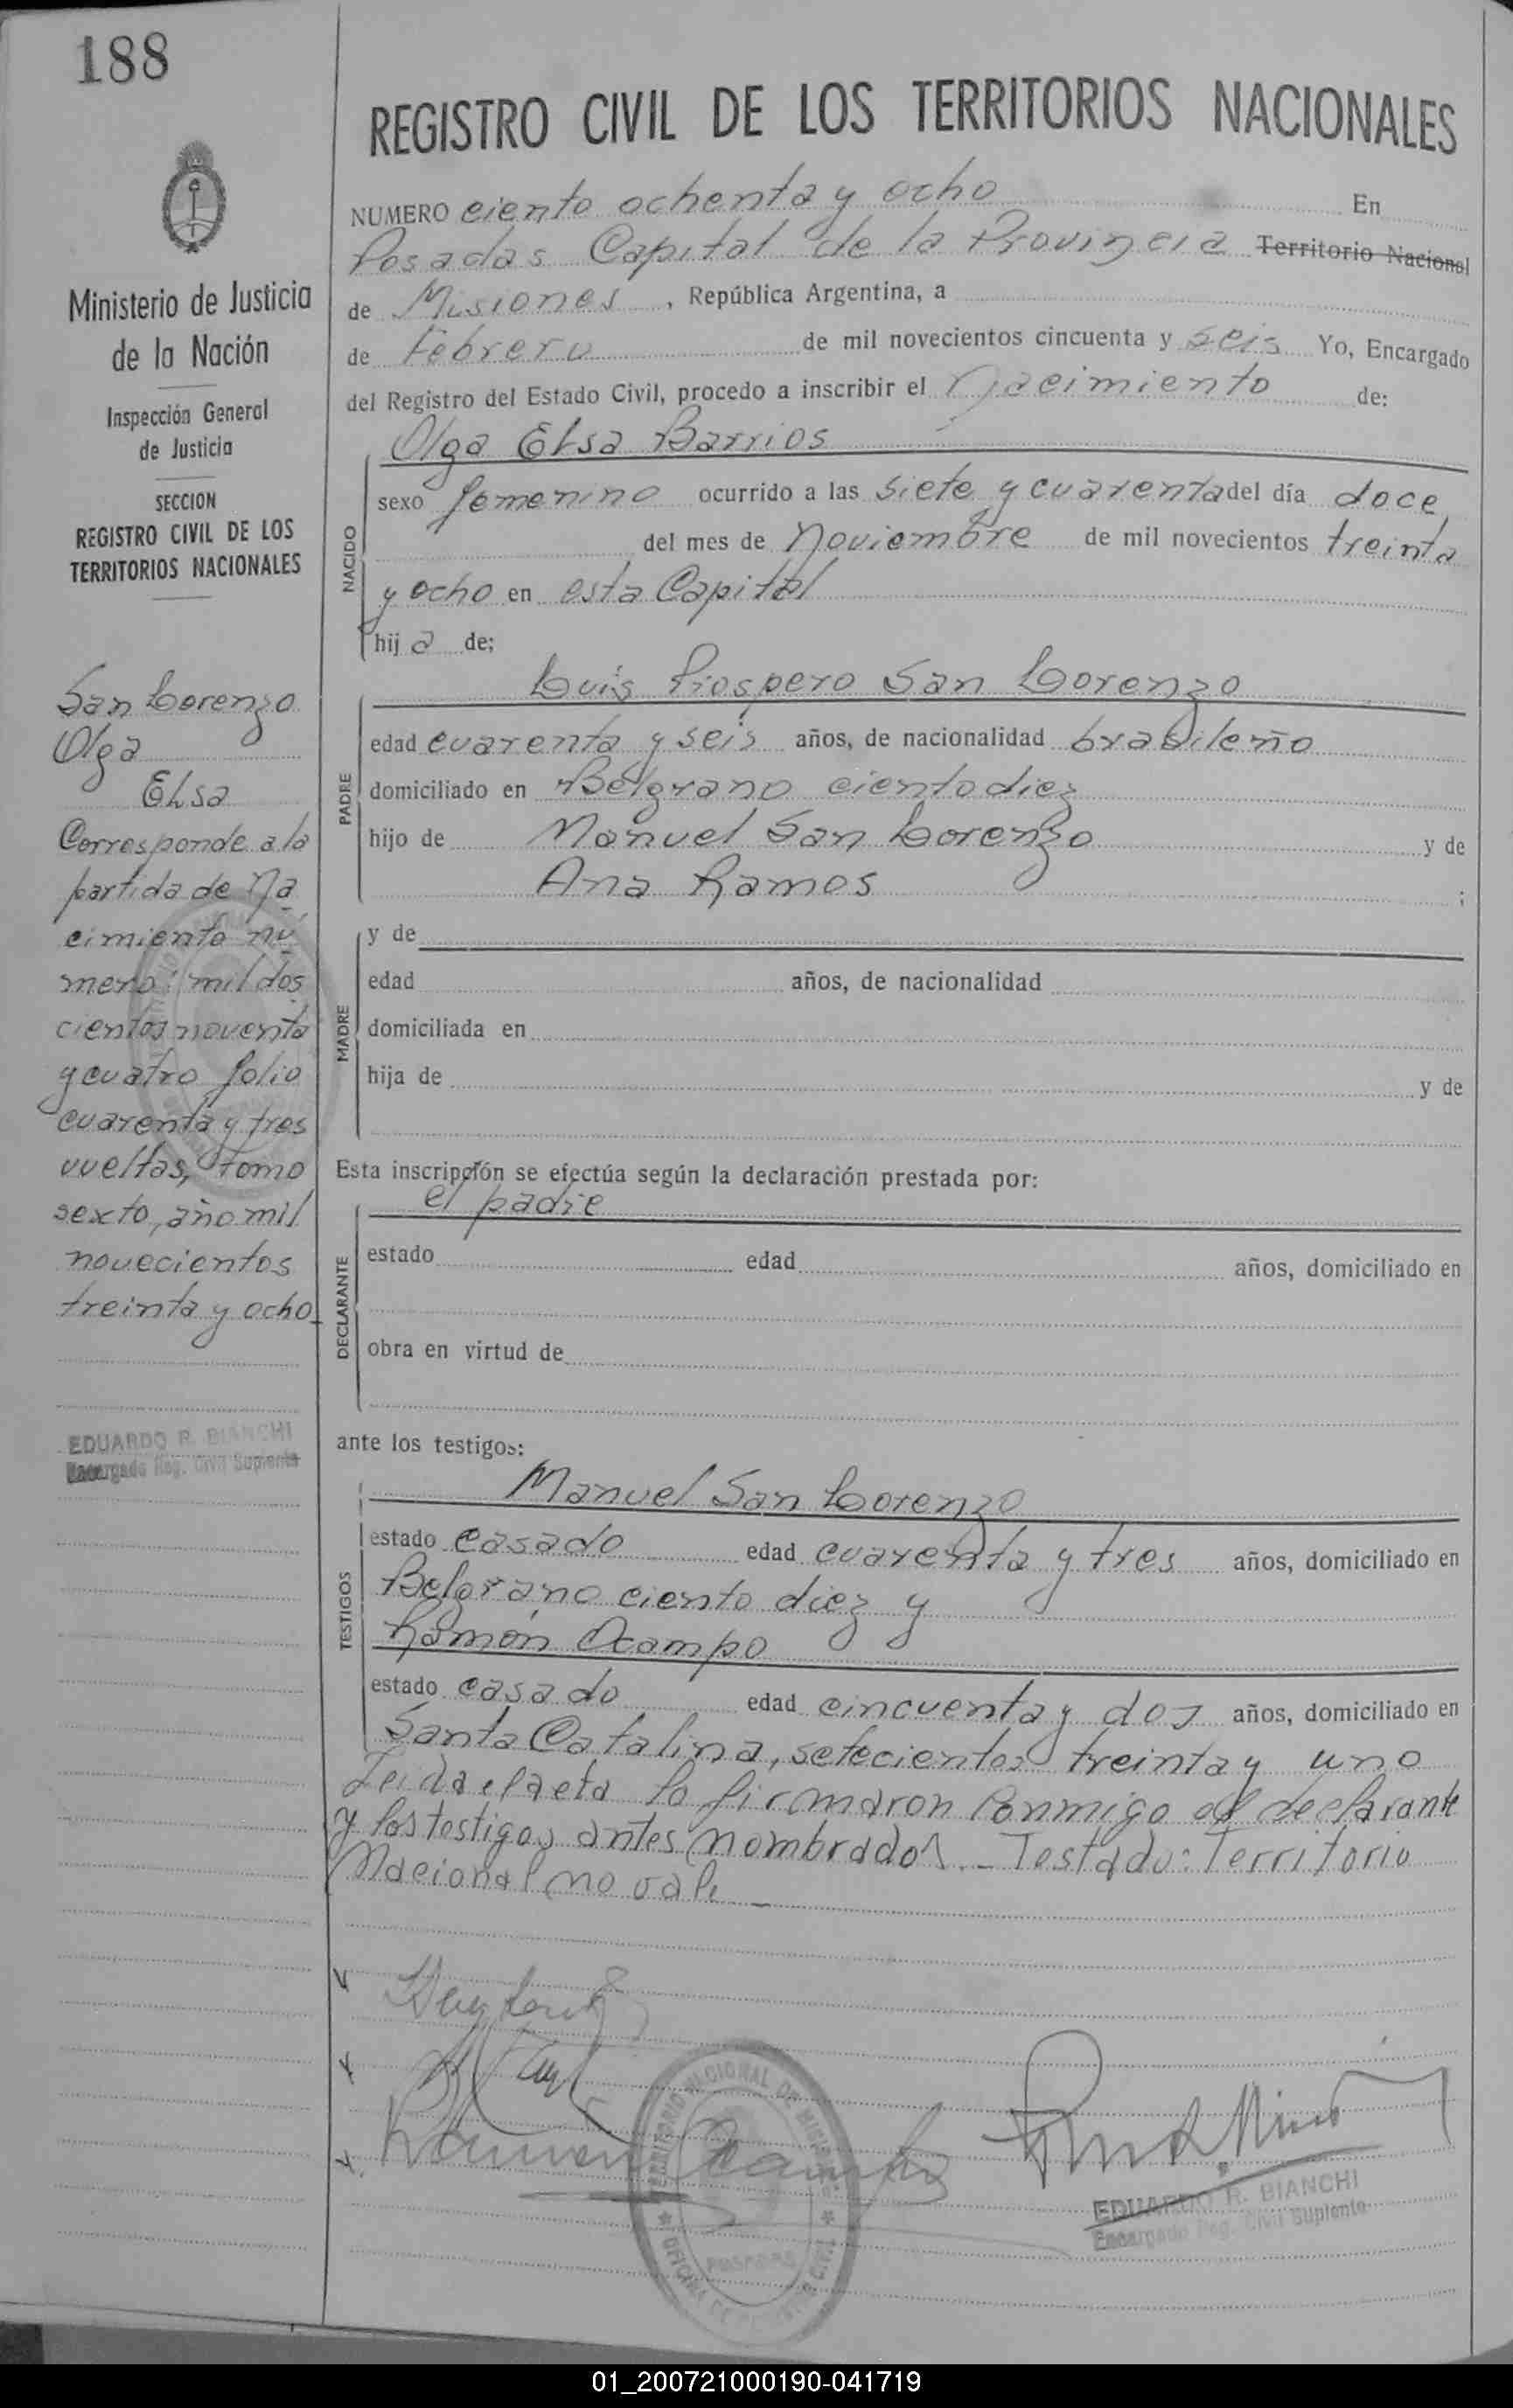 188
REGISTRO CIVIL DE LOS TERRITORIOS NACIONALES
Ministerio de Justicia
de la Nación
Inspección General
de Justicia
SECCION
REGISTRO CIVIL DE LOS
TERRITORIOS NACIONALES
San Lorenzo
Olga
Elsa
Corresponde a la
partida de Na
cimiento nú
mero: mil dos
cientos noventa
y cuatro folio
cuarenta y tres
vueltas, tomo
sexto, año mil
novecientos
treinta y ocho
EDUARDO R. BIANCHI
Encargado Reg. Civil Suplente
NUMERO ciento ochenta y ocho En
Posadas Capital de la Provincia Territorio Nacional
de Misiones, República Argentina, a
de Febrero de mil novecientos cincuenta y seis Yo, Encargado
del Registro del Estado Civil, procedo a inscribir el Nacimiento de:
Olga Elsa Barrios
NACIDO
sexo femenino ocurrido a las siete y cuarenta del día doce
del mes de Noviembre de mil novecientos treinta
y ocho en esta Capital
hija de;
Luis Prospero San Lorenzo
PADRE
edad cuarenta y seis años, de nacionalidad brasileño
domiciliado en Belgrano ciento diez
hijo de Manuel San Lorenzo y de
Ana Ramos ;
MADRE
y de
edad años, de nacionalidad
domiciliada en
hija de y de
Esta inscripción se efectúa según la declaración prestada por:
el padre
DECLARANTE
estado edad años, domiciliado en
obra en virtud de
ante los testigos:
Manuel San Lorenzo
TESTIGOS
estado casado edad cuarenta y tres años, domiciliado en
Belgrano ciento diez y
Ramón Ocampo
estado casado edad cincuenta y dos años, domiciliado en
Santa Catalina, setecientos treinta y uno
Leida el acta la firmaron conmigo el declarante
y los testigos antes nombrados.- Testado: Territorio
Nacional no vale
Ramon Ocampo
TERRITORIO NACIONAL DE MISIONES
POSADAS
EDUARDO R. BIANCHI
Encargado Reg. Civil Suplente
01_200721000190-041719